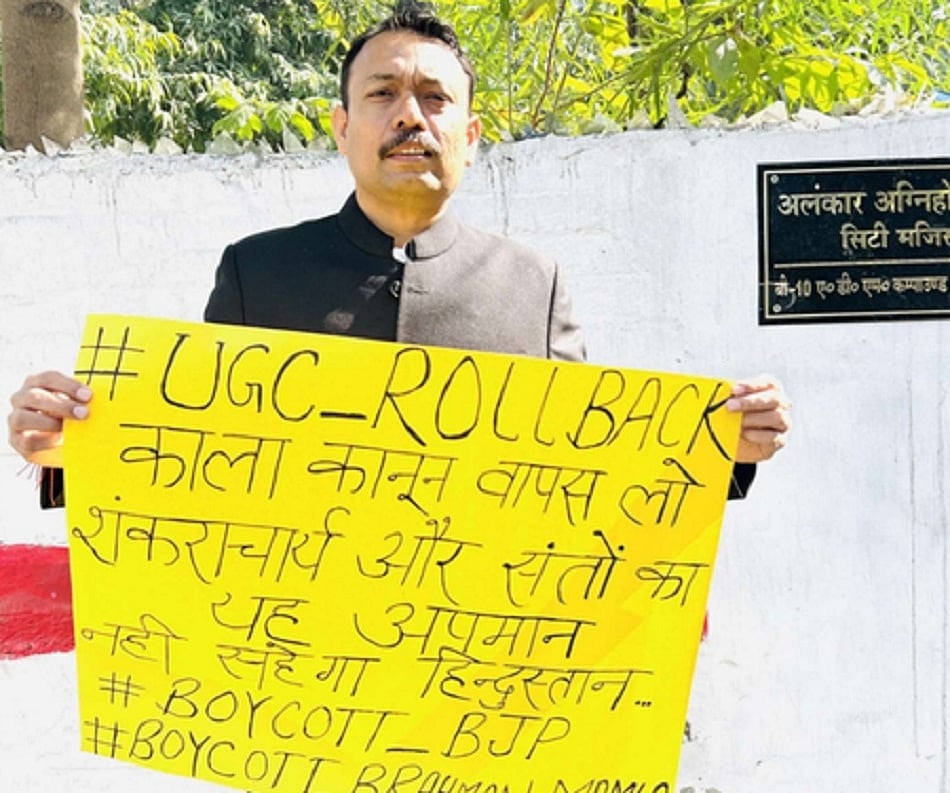 अलंकार अग्निहो
सिटी मजिस
बी-10 ए० डी० एम० कम्पाउण्ड
#UGC_ROLLBACK
काला कानून वापस लो
शंकराचार्य और संतों का
यह अपमान
नहीं सहेगा हिन्दुस्तान...
#BOYCOTT_BJP
#BOYCOTT BRAHMAN